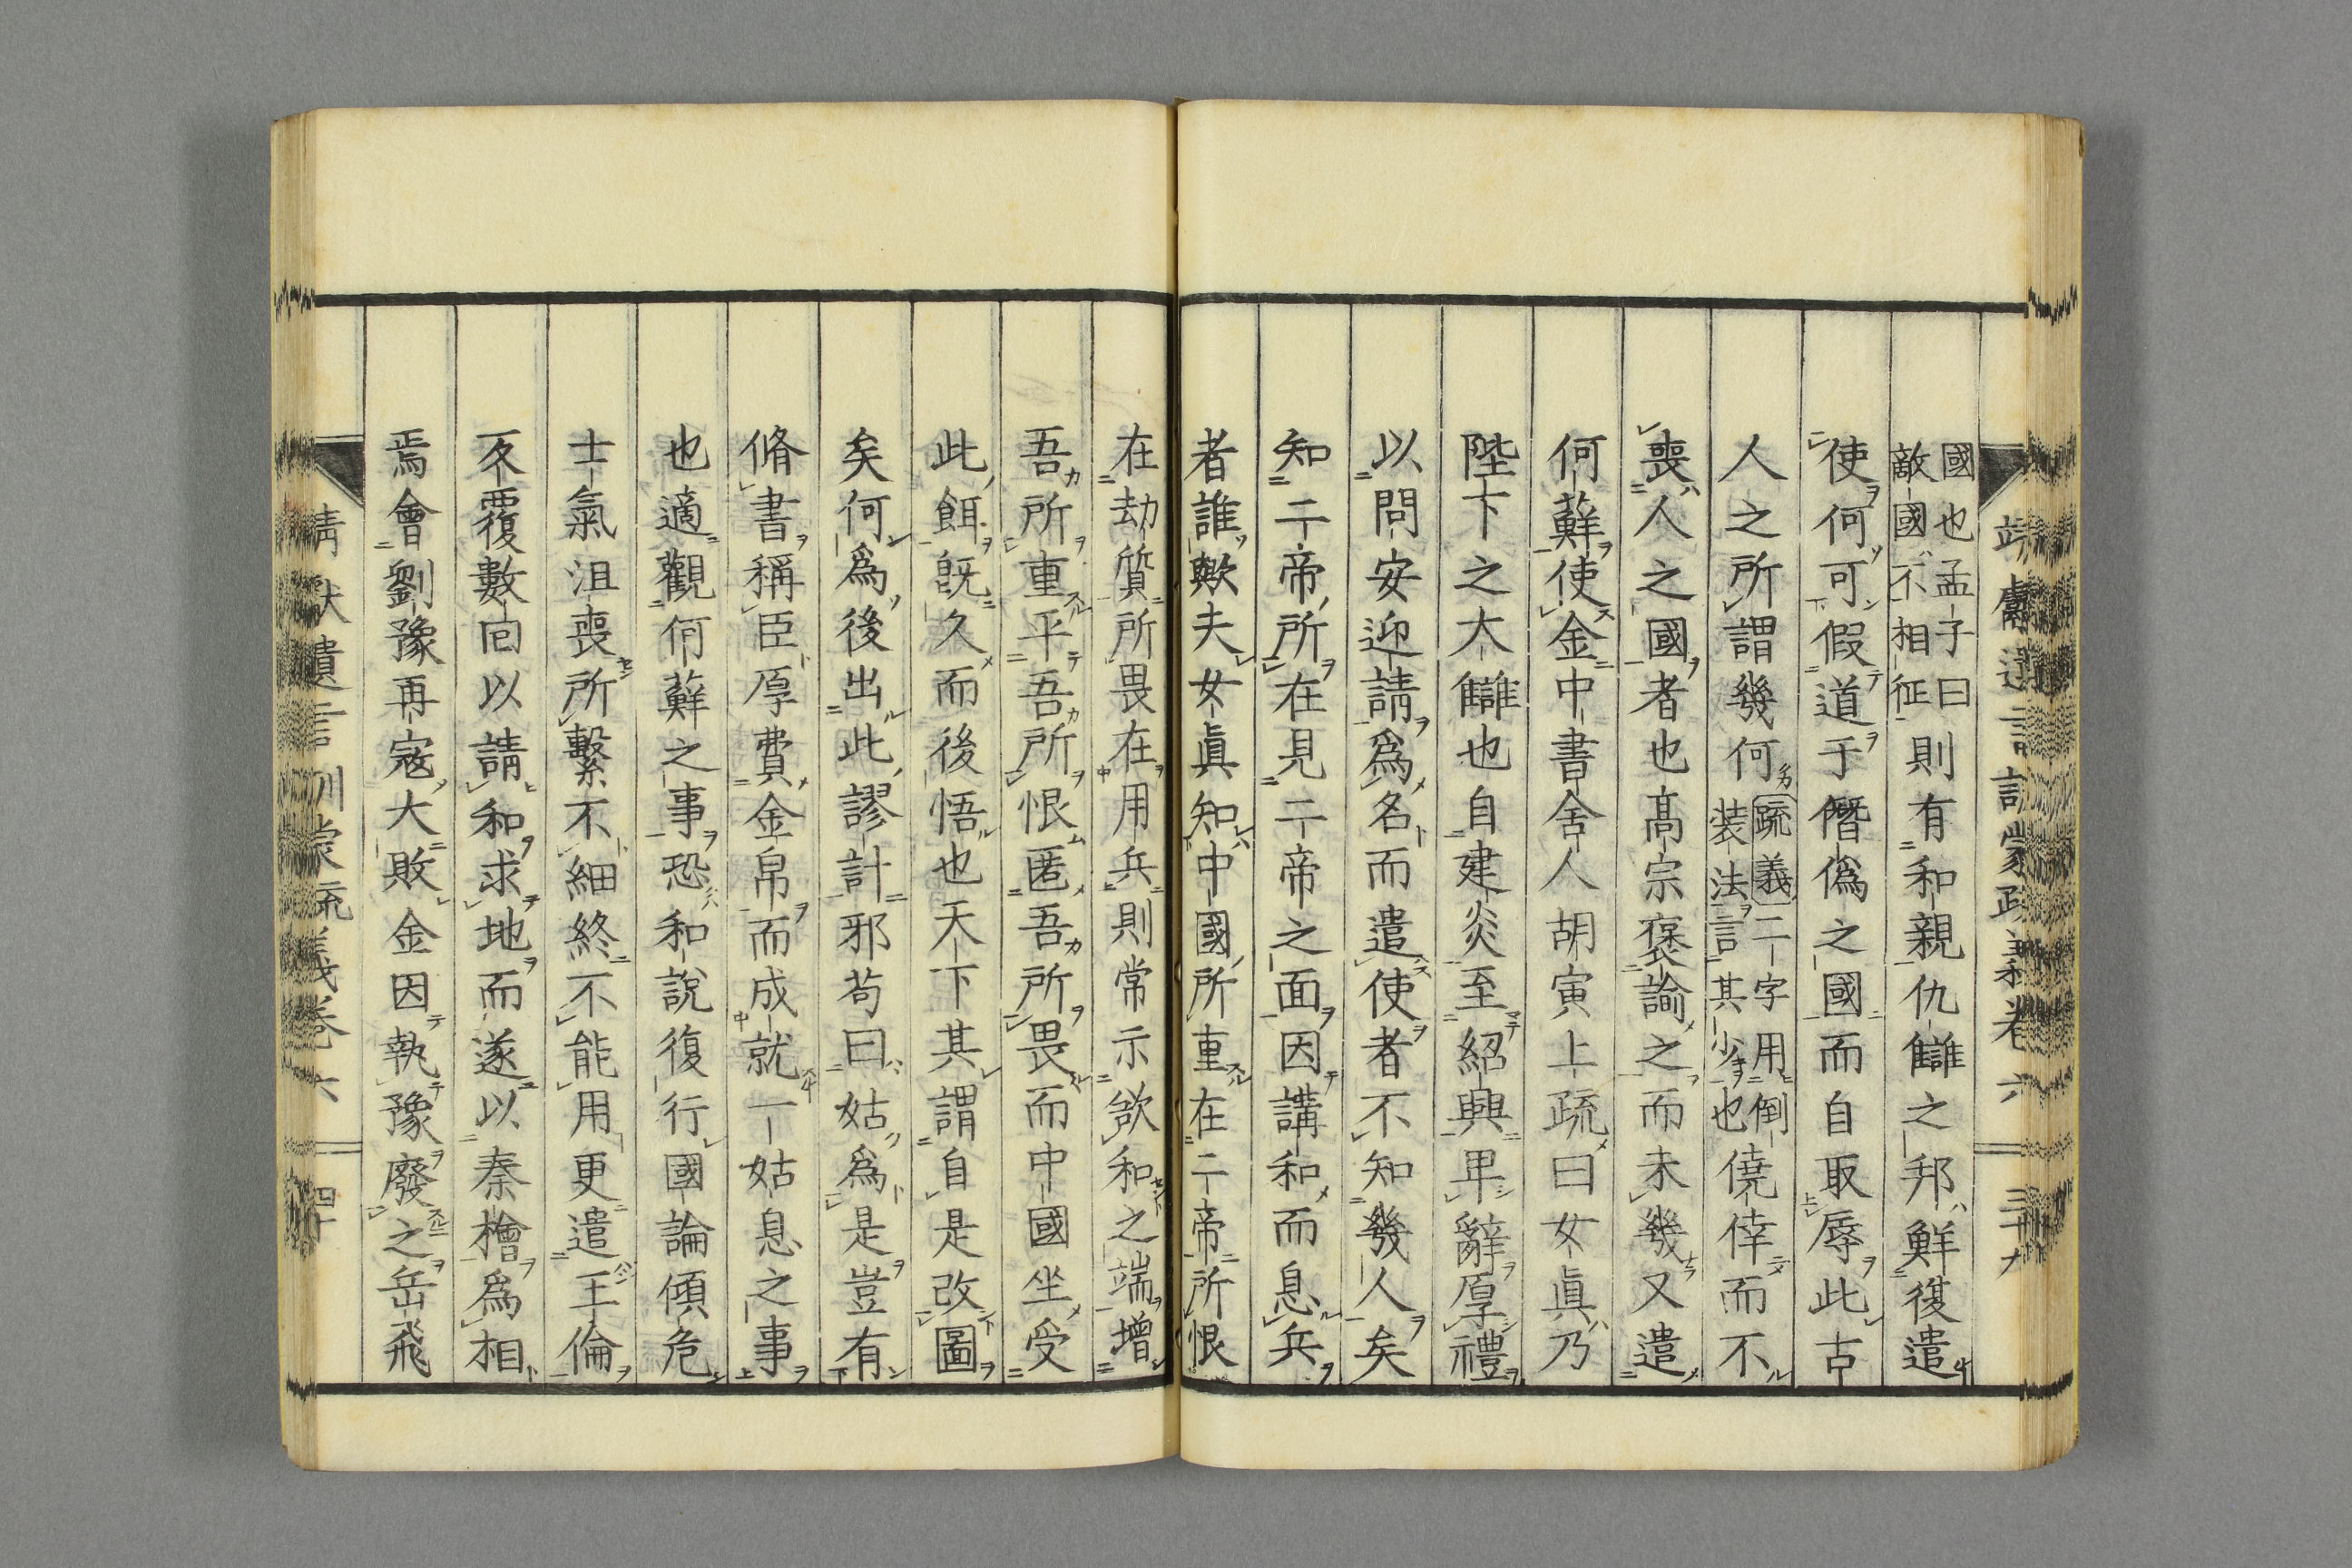 國也孟子曰
敵國不相征
則有和親仇讎之邦鮮復遣
使何可假道于僭僞之國而自取辱此古
人之所謂幾何
疏義二字用倒
装法言其少也
僥倖而不
喪人之國者也高宗褒諭之而未幾又遣
何蘚使金中書舍人胡寅上疏曰女眞乃
陛下之大讎也自建炎至紹興卑辭厚禮
以問安迎請爲名而遣使者不知幾人矣
知二帝所在見二帝之面因講和而息兵
者誰歟夫女眞知中國所重在二帝所恨
在劫質所畏在用兵則常示欲和之端增
吾所重平吾所恨匿吾所畏而中國坐受
此餌既久而後悟也天下其謂自是改圖
矣何爲後出此謬計邪苟曰姑爲是豈有
脩書稱臣厚費金帛而成就一姑息之事
也適觀何蘚之事恐和說復行國論傾危
士氣沮喪所繫不細終不能用更遣王倫
反覆數回以請和求地而遂以秦檜爲相
焉會劉豫再寇大敗金因執豫廢之岳飛
靖獻遺言訓蒙疏義卷六
四十